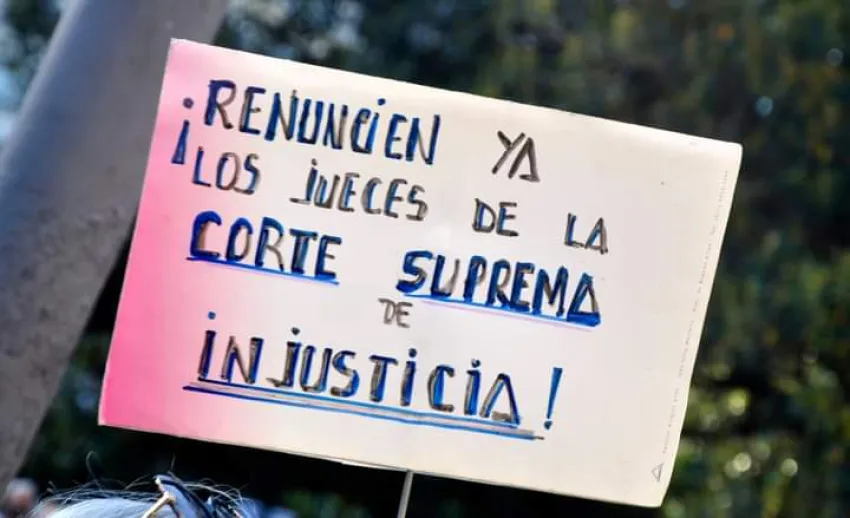 ¡RENUNCIEN YA
LOS JUECES DE LA
CORTE SUPREMA
DE
INJUSTICIA!